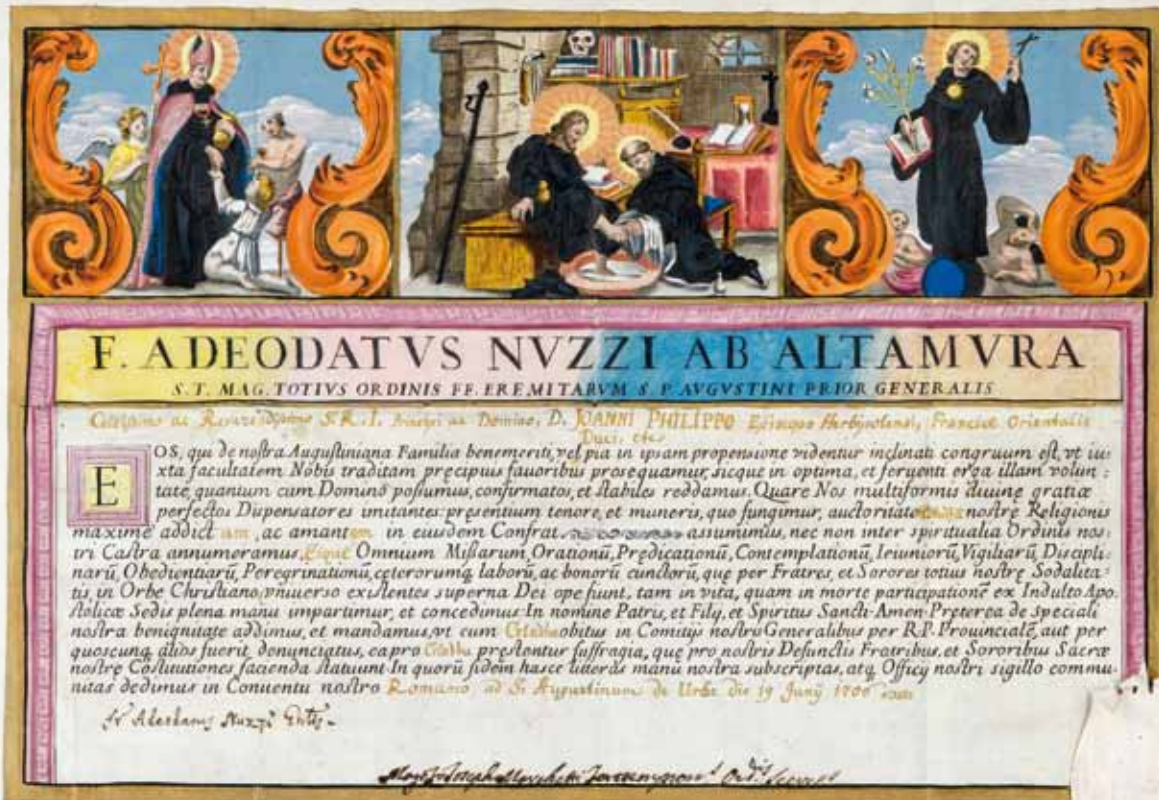 F. ADEODATVS NVZZI AB ALTAMVRA
S. T. MAG. TOTIVS ORDINIS FF. EREMITARVM S. P. AVGVSTINI PRIOR GENERALIS
Celsissimo ac Reverendissimo S. R. I. Principi ac Domino, D. JOANNI PHILIPPO Episcopo Herbipolensi, Franciæ Orientalis
Duci, etc
EOS, qui de nostra Augustiniana Familia benemeriti, vel pia in ipsam propensione videntur inclinati congruum est, vt iu:
xta facultatem Nobis traditam pręcipuis fauoribus prosequamur, sicque in optima, et feruenti erga illam volun:
tate, quantum cum Domino possumus, confirmatos, et stabiles reddamus. Quare Nos multiformis diuinę gratiæ
perfectos Dispensatores imitantes: pręsentium tenore, et muneris, quo fungimur, auctoritate nostrę Religionis
maxime addict ac amant in eiusdem Confrat assumimus, nec non inter spiritualia Ordinis nos:
tri Castra annumeramus, Omnium Missarum, Orationū, Prędicationū, Contemplationū, Ieiuniorū, Vigiliarū, Discipli:
narū, Obedientiarū, Peregrinationū, cęterorumq laborū, ac bonorū cunctorū, quę per Fratres, et Sorores totius nostrę Sodalita:
tis, in Orbe Christiano vniuerso existentes superna Dei ope fiunt, tam in vita, quam in morte participationē ex Indulto Apo
stolicæ Sedis plena manu impartimur, et concedimus. In nomine Patris, et Filij, et Spiritus Sancti. Amen. Pręterea de speciali
nostra benignitate addimus, et mandamus, vt cum obitus in Comitijs nostris Generalibus per R. P. Prouincialē, aut per
quoscunq alios fuerit denunciatus, ea pro pręstentur suffragia, quę pro nostris Defunctis Fratribus, et Sororibus Sacræ
nostrę Cōstitutiones facienda statuunt. In quorū fidem hasce litteras manu nostra subscriptas, atq Officij nostri sigillo commu
nitas dedimus in Conuentu nostro Romano ad S. Augustinum de Urbe die 19 Junij 1700